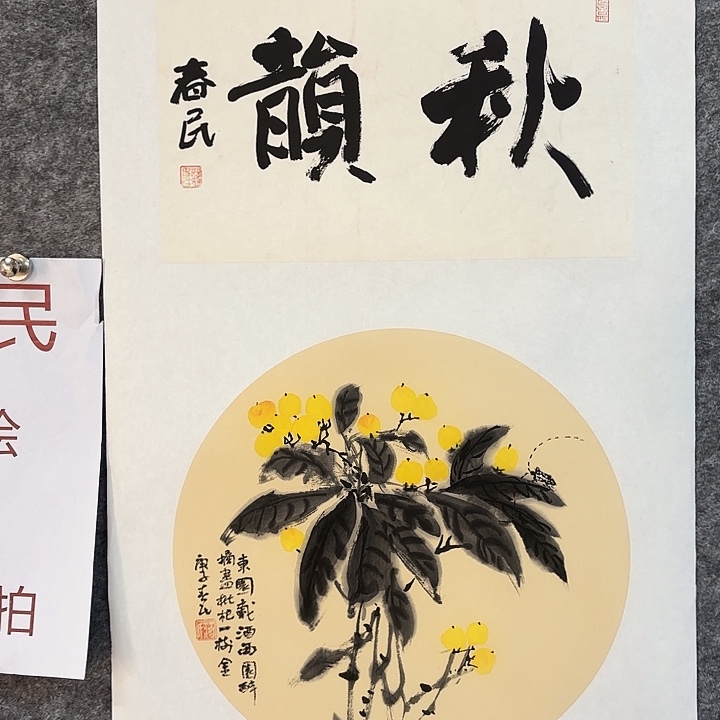 秋韻
春民
東園載酒西園醉
摘盡枇杷一樹金
庚子春民
民
绘
拍